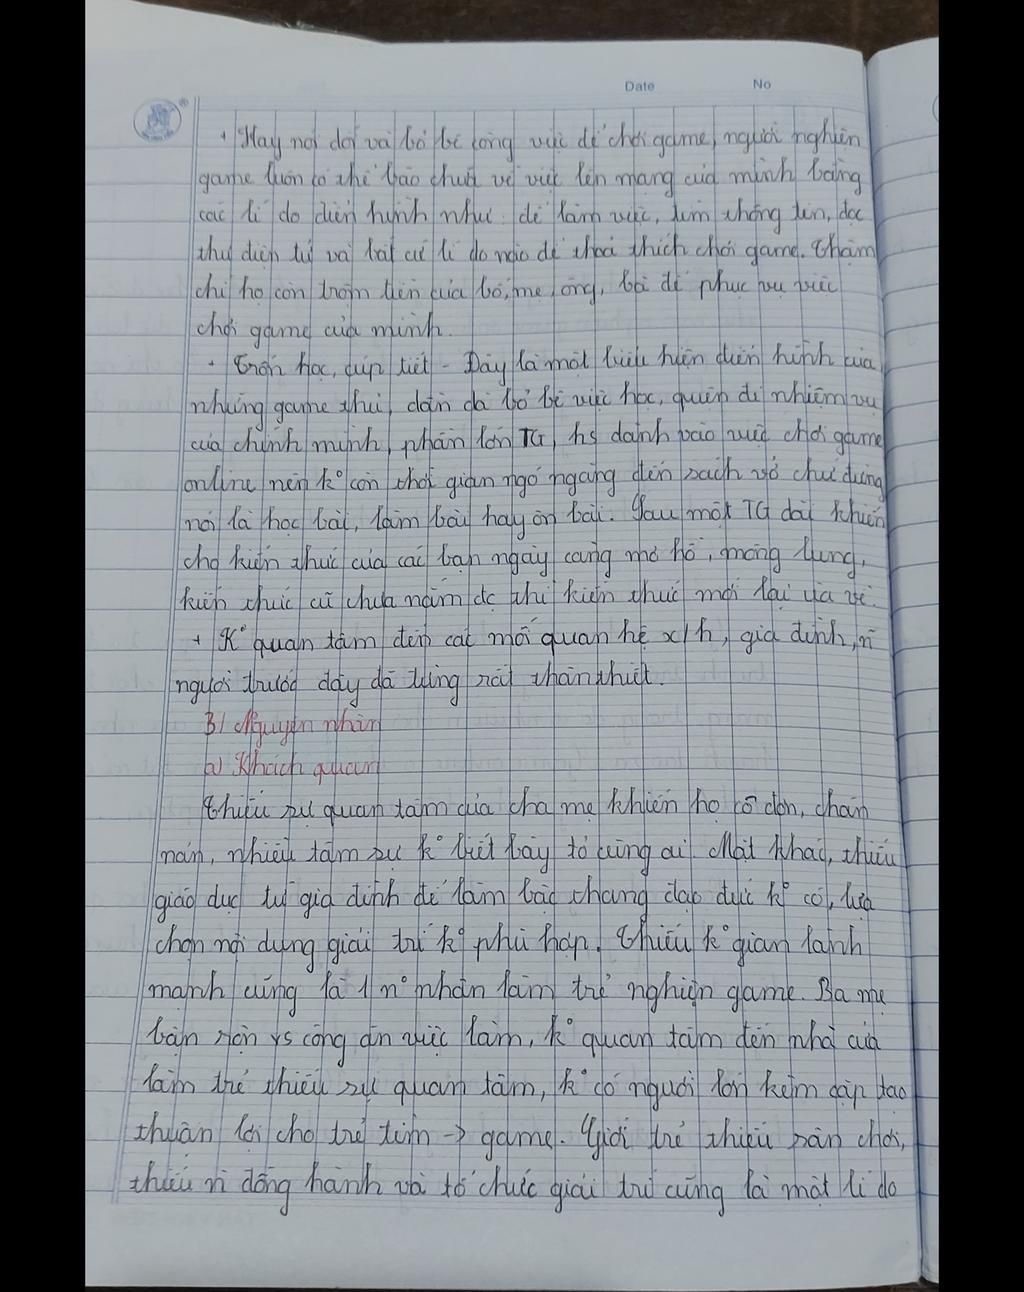 Date No
+ Hay nói dối và bỏ bê công việc để chơi game, người nghiện
game luôn có thể bào chữa về việc lên mạng của mình bằng
các lí do điển hình như: để làm việc, tìm thông tin, đọc
thư điện tử và bất cứ lí do nào để thoả thích chơi game. Thậm
chí họ còn trộm tiền của bố, mẹ, ông, bà để phục vụ việc
chơi game của mình.
+ Trốn học, cúp tiết - Đây là một biểu hiện điển hình của
những game thủ, dần dà bỏ bê việc học, quên đi nhiệm vụ
của chính mình, phần lớn TG, hs dành vào việc chơi game
online nên k° còn thời gian ngó ngàng đến sách vở chứ đừng
nói là học bài, làm bài hay ôn bài. Sau một TG dài khiến
cho kiến thức của các bạn ngày càng mơ hồ, mông lung,
kiến thức cũ chưa nắm đc thì kiến thức mới lại ùa về.
+ K° quan tâm đến các mối quan hệ x/h, gia đình, n~
người trước đây đã từng rất thân thiết.
3/ Nguyên nhân
a) Khách quan
Thiếu sự quan tâm của cha mẹ khiến họ cô đơn, chán
nản, nhiều tâm sự k° biết bày tỏ cùng ai. Mặt khác, thiếu
giáo dục từ gia đình để làm bậc thang đạo đức k° có, lựa
chọn nội dung giải trí k° phù hợp. Thiếu k° gian lành
mạnh cũng là 1 n° nhân làm trẻ nghiện game. Ba mẹ
bận rộn vs công ăn việc làm, k° quan tâm đến nhà cửa
làm trẻ thiếu sự quan tâm, k° có người lớn kèm cặp tạo
thuận lợi cho trẻ tìm -> game. Giới trẻ thiếu sân chơi,
thiếu n~ đồng hành và tổ chức giải trí cũng là một lí do